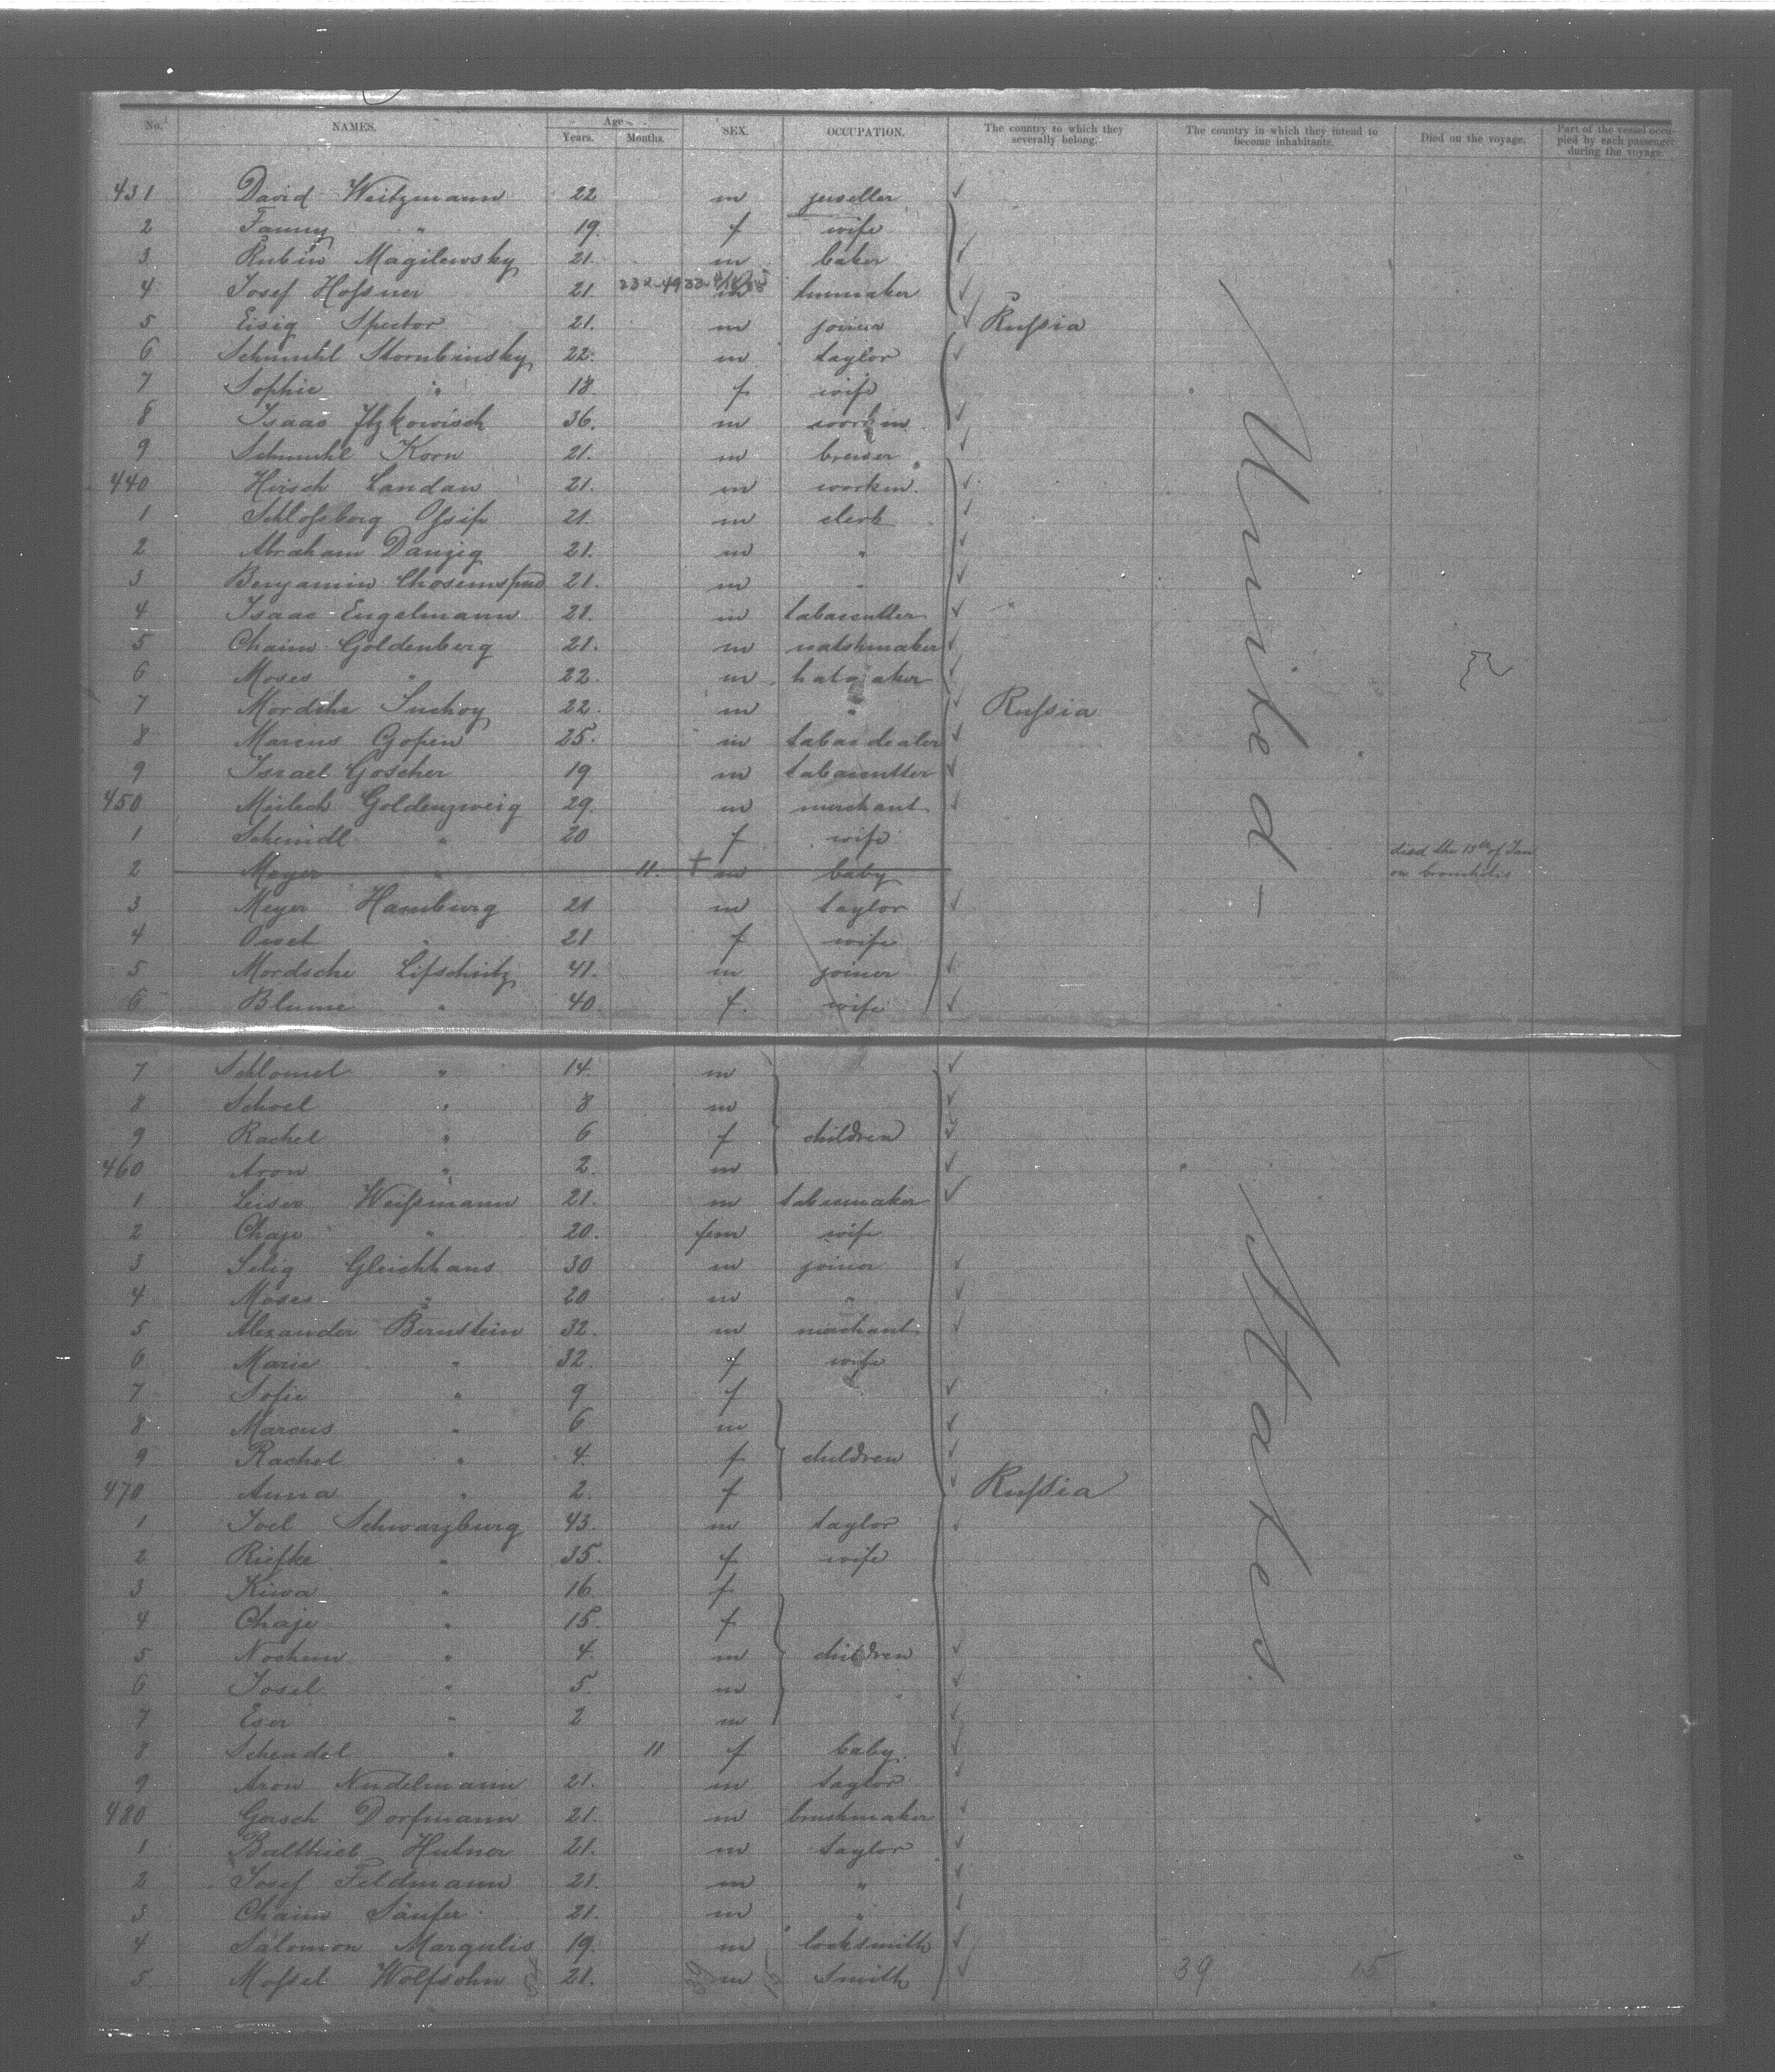 No. NAMES. Age Years. Months. SEX. OCCUPATION. The country to which they severally belong. The country in which they intend to become inhabitants. Died on the voyage. Part of the vessel occupied by each passenger during the voyage.
431 David Weitzmann 22 m jeweller
2 Fanny " 19. f wife
3. Rubin Magilewsky 21. m baker
4 Josef Hoſsner 21. m
5 Eisig Spector 21. m joiner Ruſsia
6 Schmuhl Stornbinsky 22. m taylor
7 Sophie " 18 f wife
8 Isaac Itzkowisch 36. m workm.
9 Schmuhl Korn 21. m brewer
440 Hirsch Landau 21. m workm.
1 Schloſsberg Oſsip 21. m clerk
2 Abraham Danzig 21. m "
3 Benjamin 21. m "
4 Isaac Engelmann 21. m tabaccutter
5 Chaim Goldenberg 21. m
6 Moses " 22. m hatmaker
7 Mordche Suchoy 22. m " Ruſsia
8 Marcus Gopen 25. m tabacdealer
9 Israel Goscher 19 m tabaccutter
450 Meilech Goldenzweig 29. m merchant
1 Scheindl " 20 f wife
2 Meyer " 11. + m baby died the 13th of Jan on bronchitis
3 Meyer Hamburg 21 m taylor
4 " 21 f wife
5 Mordsche Lifschitz 41. m joiner
6 Blume " 40 f. wife
7 Schlomel " 14. m
8 Schoel " 8 m
9 Rachel " 6 f children
460 Aron " 2. m
1 Leiser Weiſsmann 21. m
2 Chaje " 20. fem wife
3 Selig Gleichhaus 30 m joiner
4 Moses " 20 m "
5 Alexander Bernstein 32. m merchant
6 Marie " 32. f wife
7 Sofie " 9 f
8 Marcus " 6 m
9 Rachel " 4. f children
470 Anna " 2. f Ruſsia
1 Joel Schwarzburg 43. m taylor
2 Riefke " 35. f wife
3 Kiwa " 16. f
4 Chaje " 15. f
5 Nochum " 4. m children
6 Josel " 5. m
7 Eser " 2 m
8 Schendel " 11 f baby.
9 Aron Nudelmann 21. m taylor
480 Gersch Dorfmann 21. m brushmaker
1 Hutner 21. m taylor
2 Josef Feldmann 21. m "
3 Chaim Säufer 21. m "
4 Salomon Margulis 19. m locksmith
5 Moſsel Wolfsohn 21. m Smith 39 15
United-
States